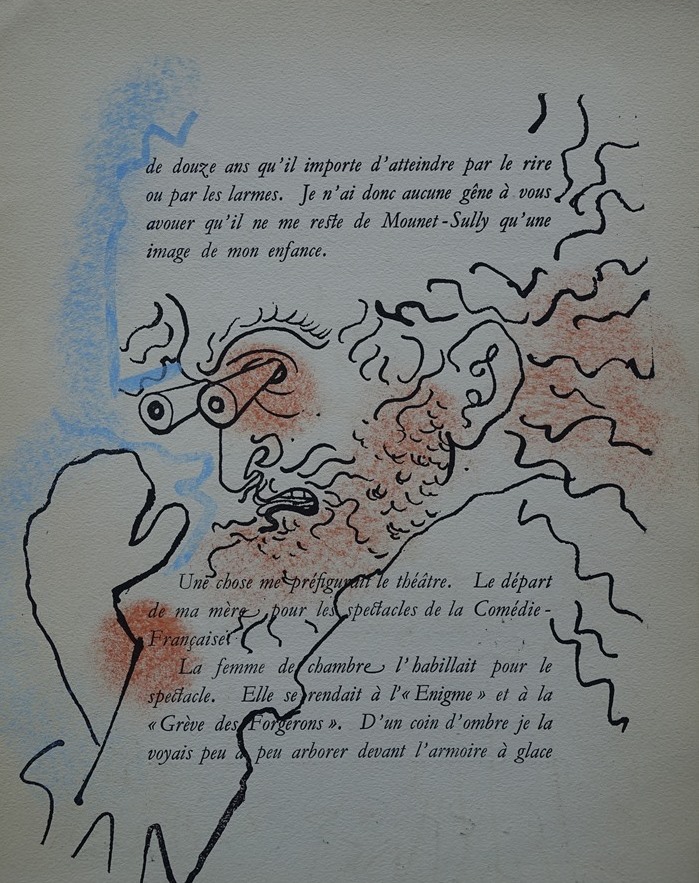 de douze ans qu'il importe d'atteindre par le rire
ou par les larmes. Je n'ai donc aucune gêne à vous
avouer qu'il ne me reste de Mounet-Sully qu'une
image de mon enfance.
Une chose me préfigurait le théâtre. Le départ
de ma mère, pour les spectacles de la Comédie-
Française.
La femme de chambre l'habillait pour le
spectacle. Elle se rendait à l'« Enigme » et à la
« Grève des Forgerons ». D'un coin d'ombre je la
voyais peu à peu arborer devant l'armoire à glace